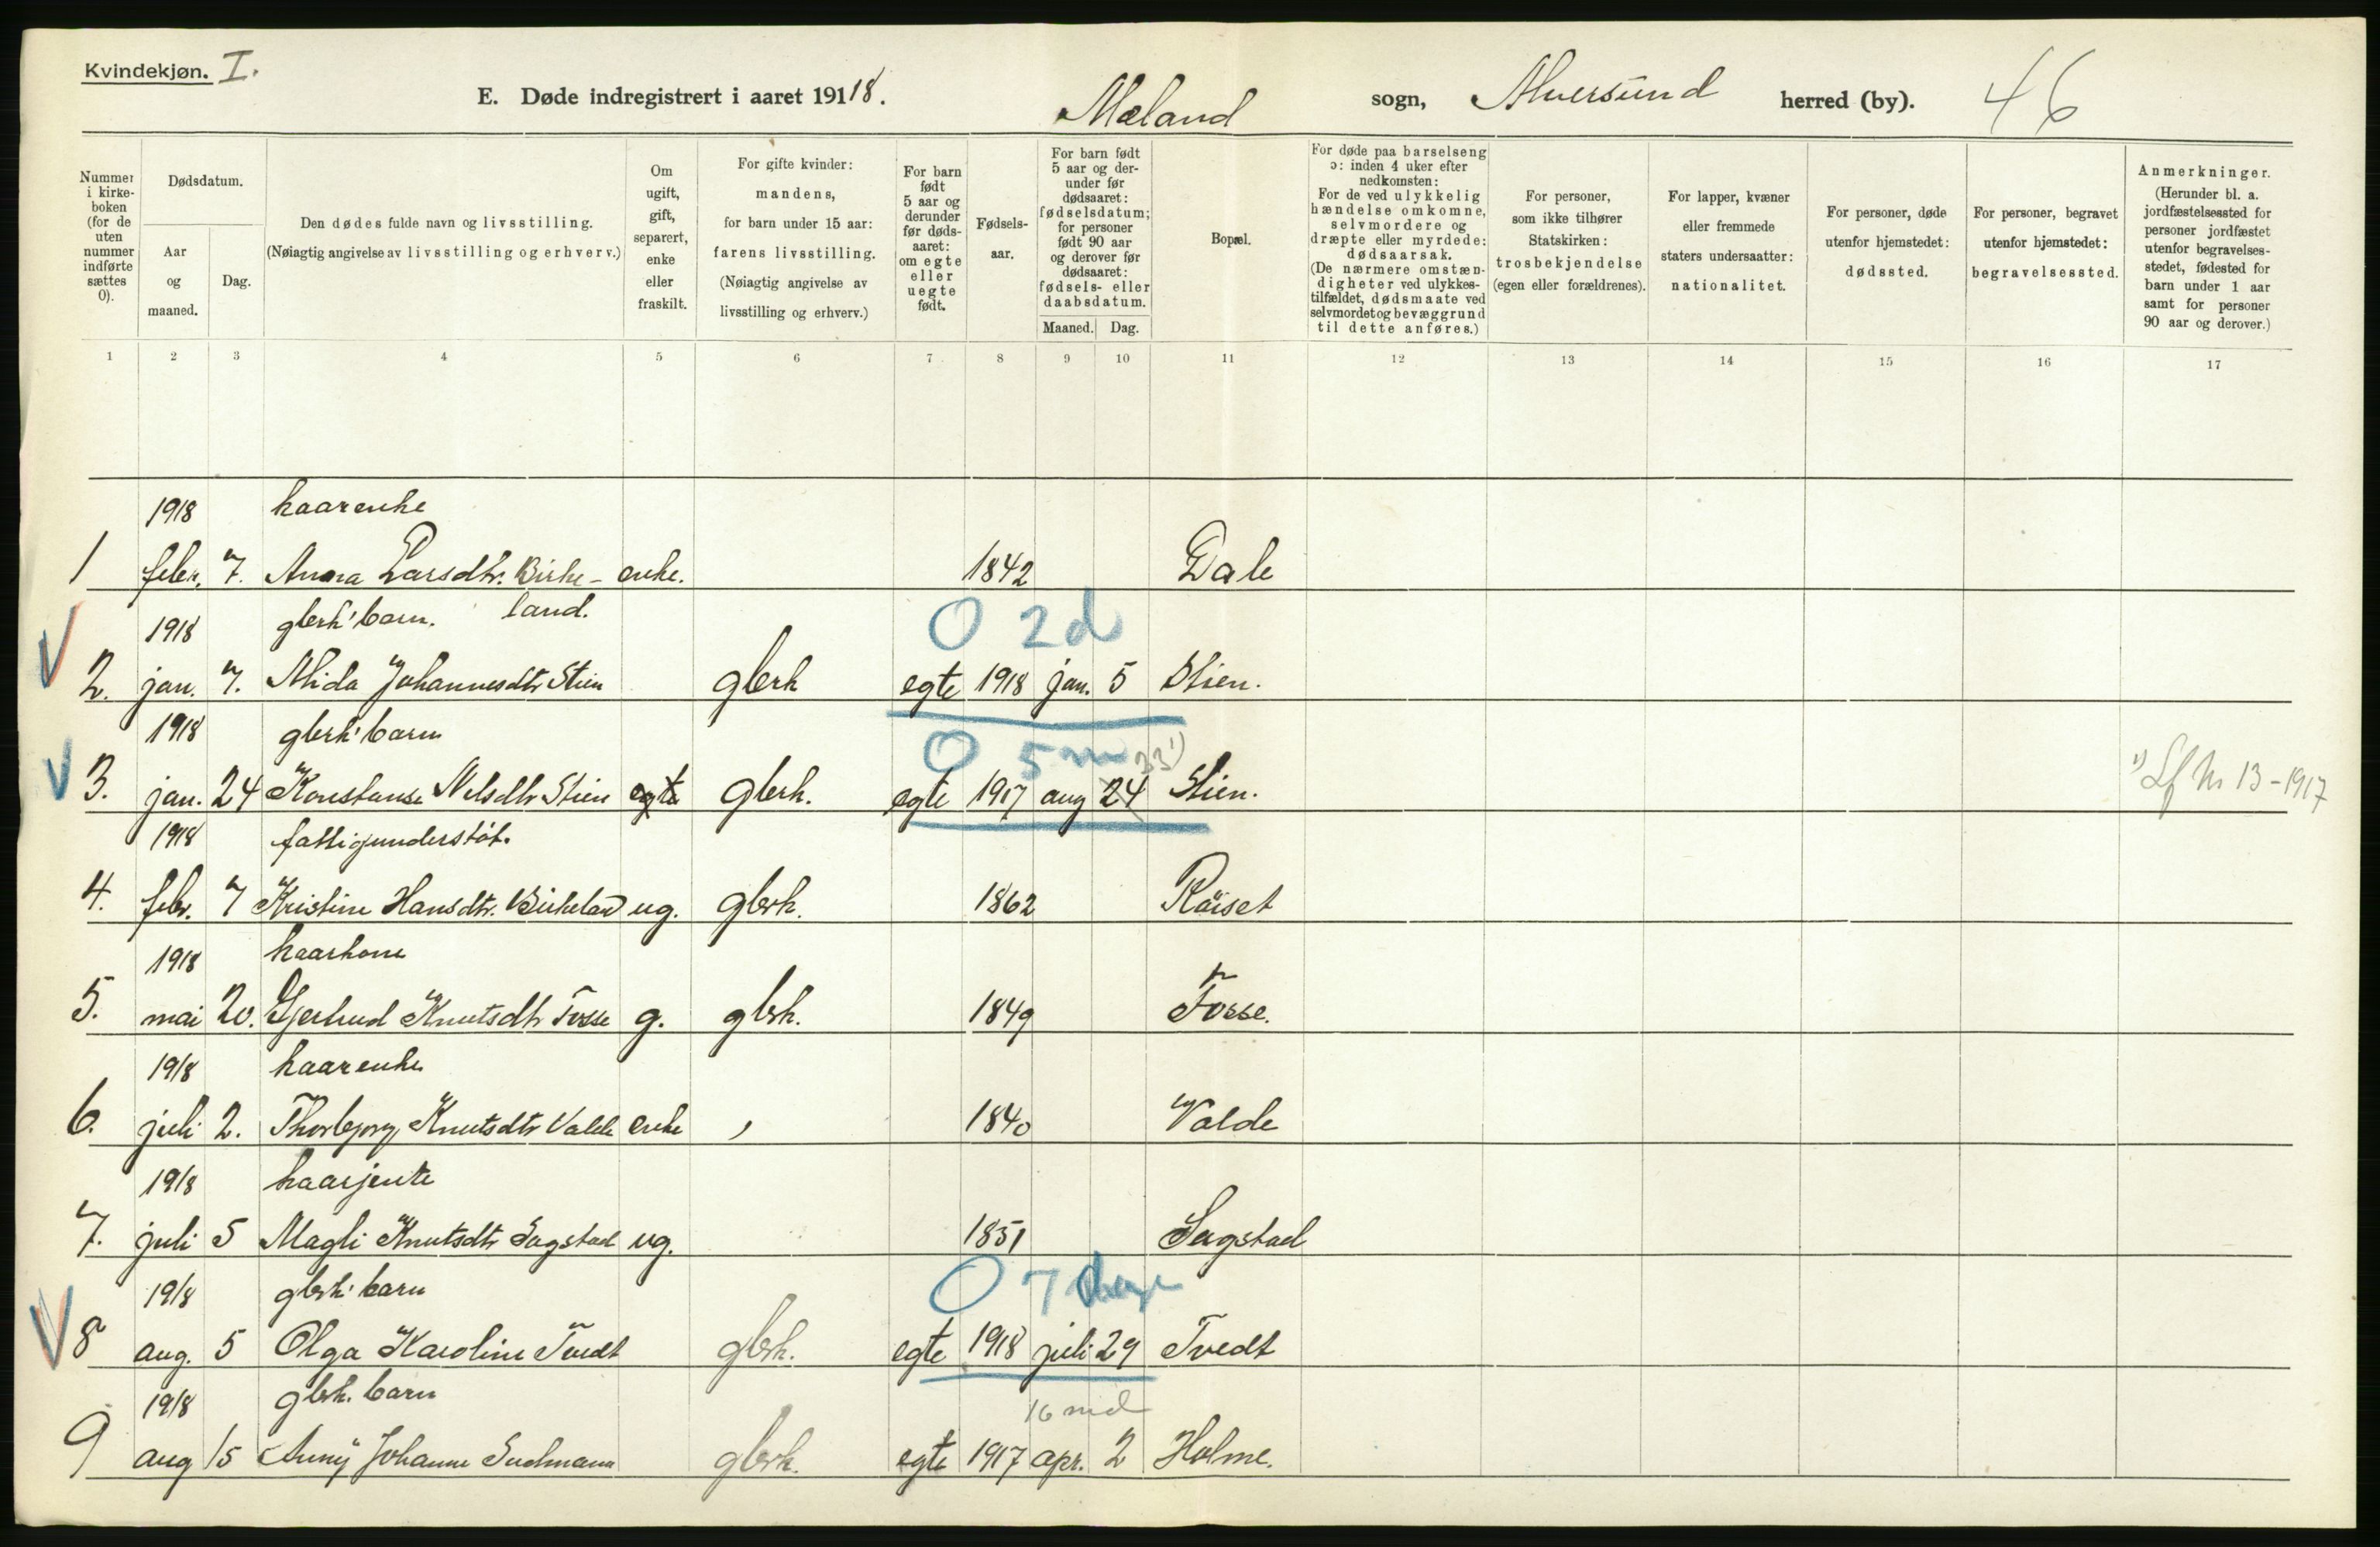 Kvindekjøn. I.
E. Døde indregistrert i aaret 19118. Mæland sogn, Alversund herred (by). 46
Nummer i kirkeboken (for de uten nummer indførte sættes 0).
Dødsdatum.
Aar og maaned.
Dag.
Den dødes fulde navn og livsstilling.
(Nøiagtig angivelse av livsstilling og erhverv.)
Om ugift, gift, separert, enke eller fraskilt.
For gifte kvinder: mandens, for barn under 15 aar: farens livsstilling. (Nøiagtig angivelse av livsstilling og erhverv.)
For barn født 5 aar og derunder før dødsaaret: om egte eller uegte født.
Fødselsaar.
For barn født 5 aar og derunder før dødsaaret: fødselsdatum; for personer født 90 aar og derover før dødsaaret: fødsels- eller daabsdatum.
Maaned. Dag.
Bopæl.
For døde paa barselseng ɔ: inden 4 uker efter nedkomsten: For de ved ulykkelig hændelse omkomne, selvmordere og dræpte eller myrdede: dødsaarsak. (De nærmere omstændigheter ved ulykkestilfældet, dødsmaate ved selvmordet og bevæggrund til dette anføres.)
For personer, som ikke tilhører Statskirken: trosbekjendelse (egen eller forældrenes).
For lapper, kvæner eller fremmede staters undersaatter: nationalitet.
For personer, døde utenfor hjemstedet: dødssted.
For personer, begravet utenfor hjemstedet: begravelsessted.
Anmerkninger. (Herunder bl. a. jordfæstelsessted for personer jordfæstet utenfor begravelsesstedet, fødested for barn under 1 aar samt for personer 90 aar og derover.)
1 2 3 4 5 6 7 8 9 10 11 12 13 14 15 16 17
1918 kaarenke
1 febr. 7. Anna Larsdtr. Birke- enke. 1842 Dale
land.
1918 gbrk' barn. 0 2d
2. jan. 7. Alida Johannesdtr Stien gbrk egte 1918 jan. 5 Stien.
1918 gbrk' barn 0 5 m 23 1)
3. jan. 24 Konstanse Nilsdtr Stien egte gbrk. egte 1917 aug 24 Stien. 1) Lf Nr 13-1917
1918 fattigunderstøt.
4. febr. 7 Kristine Hansdtr. Birkeland ug. gbrk. 1862 Röiset
1918 kaarkone
5. mai 20. Gjertrud Knutsdtr Fosse g. gbrk. 1849 Fosse.
1918 kaarenke
6. juli 2. Thorbjørg Knutsdtr Valde enke , 1840 Valde
1918 kaarjente
7. juli 5 Magli Knutsdtr Sagstad ug. 1851 Sagstad
1918 gbrk' barn 0 7 dage
8 aug. 5 Olga Karoline Tvedt gbrk. egte 1918 juli 29 Tvedt
1918 gbrk. barn 16 md
9 aug 15 Anny Johanne Sudmann gbrk. egte 1917 apr. 2 Holme.